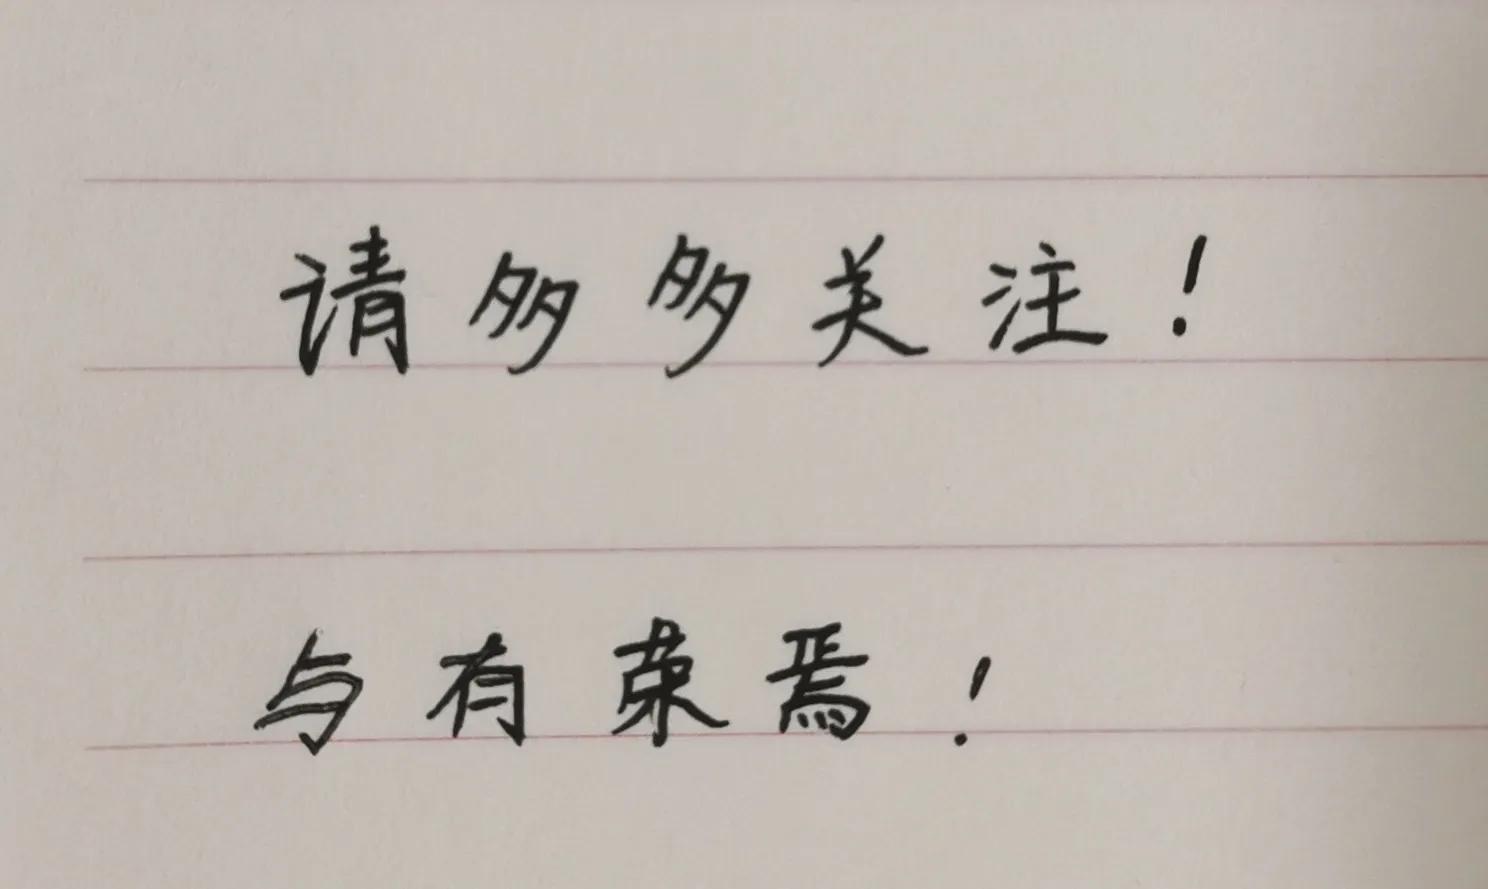 请多多关注！
与有荣焉！